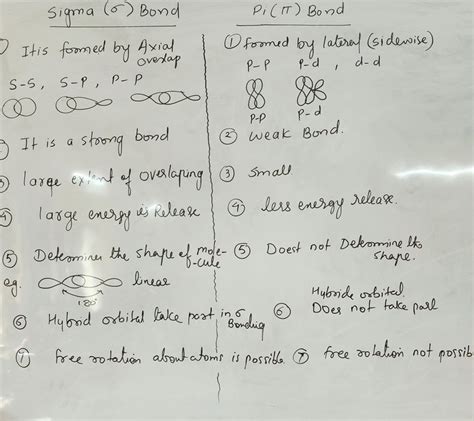 Sigma (σ) Bond
Pi (π) Bond
It is formed by Axial
overlap
S-S, S-P, P-P
② It is a strong bond
③ large extent of overlaping
④ large energy is Release
⑤ Determines the shape of mole-
-cule
eg. linear
180°
⑥ Hybrid orbital take part in σ
Bonding
⑦ free rotation about atoms is possible
① formed by lateral (sidewise)
P-P P-d , d-d
P-P P-d
② weak Bond.
③ small
④ less energy release.
⑤ Doest not Determine its
shape.
Hybride orbital
⑥ Does not take part
⑦ free rotation not possib